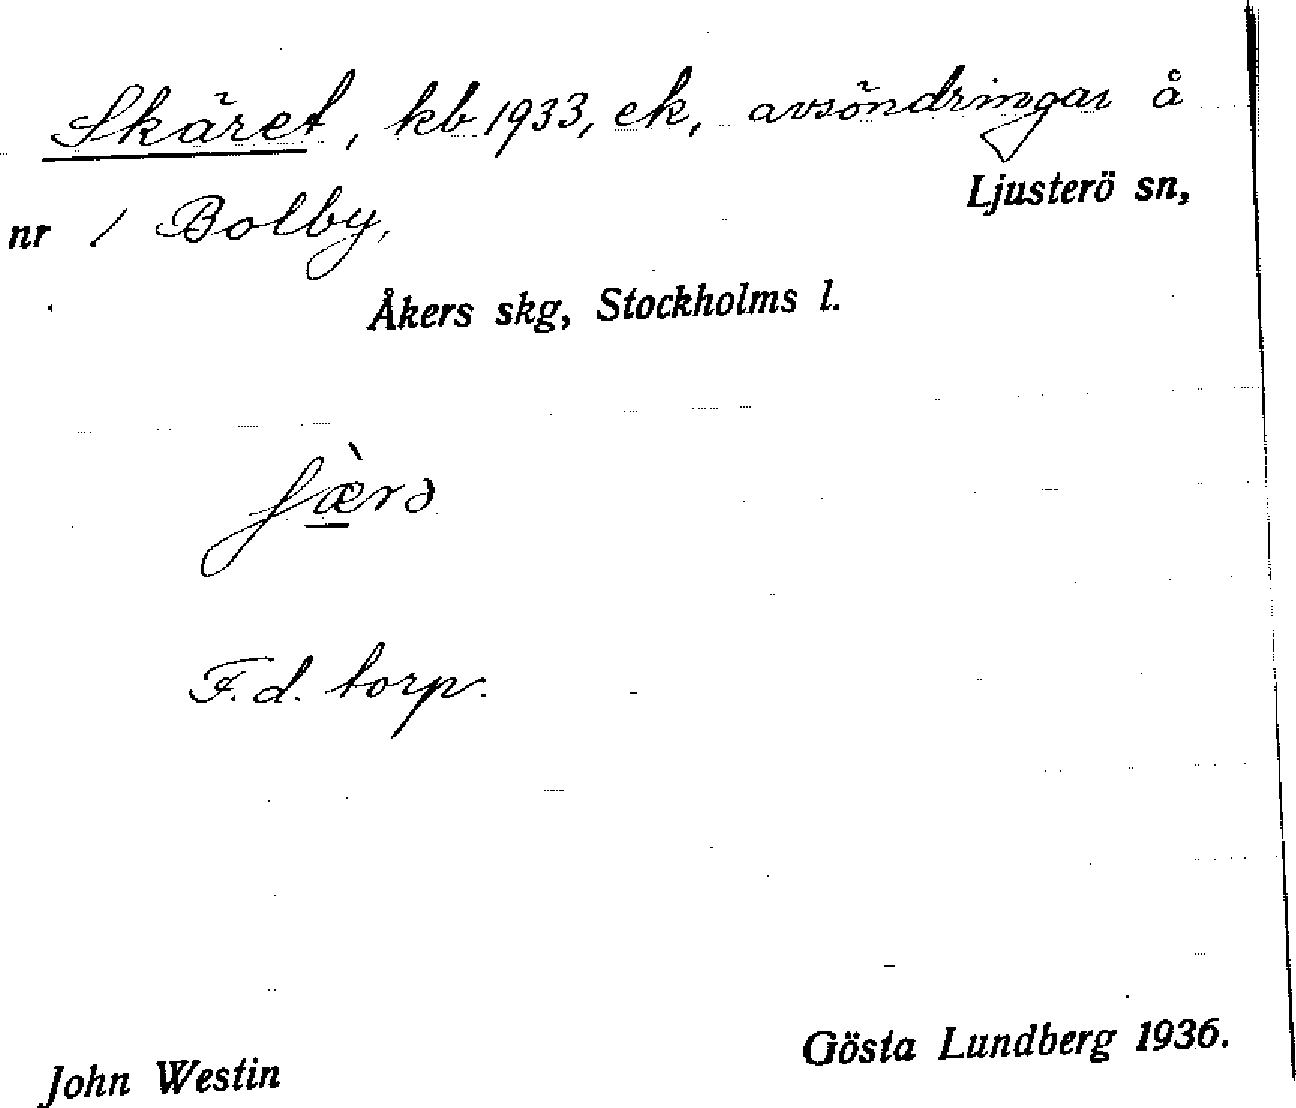 Skäret, kb 1933, ek, avsöndringar å
Ljusterö sn,
nr 1 Bolby,
Åkers skg, Stockholms l.
F. d. torp.
John Westin
Gösta Lundberg 1936.